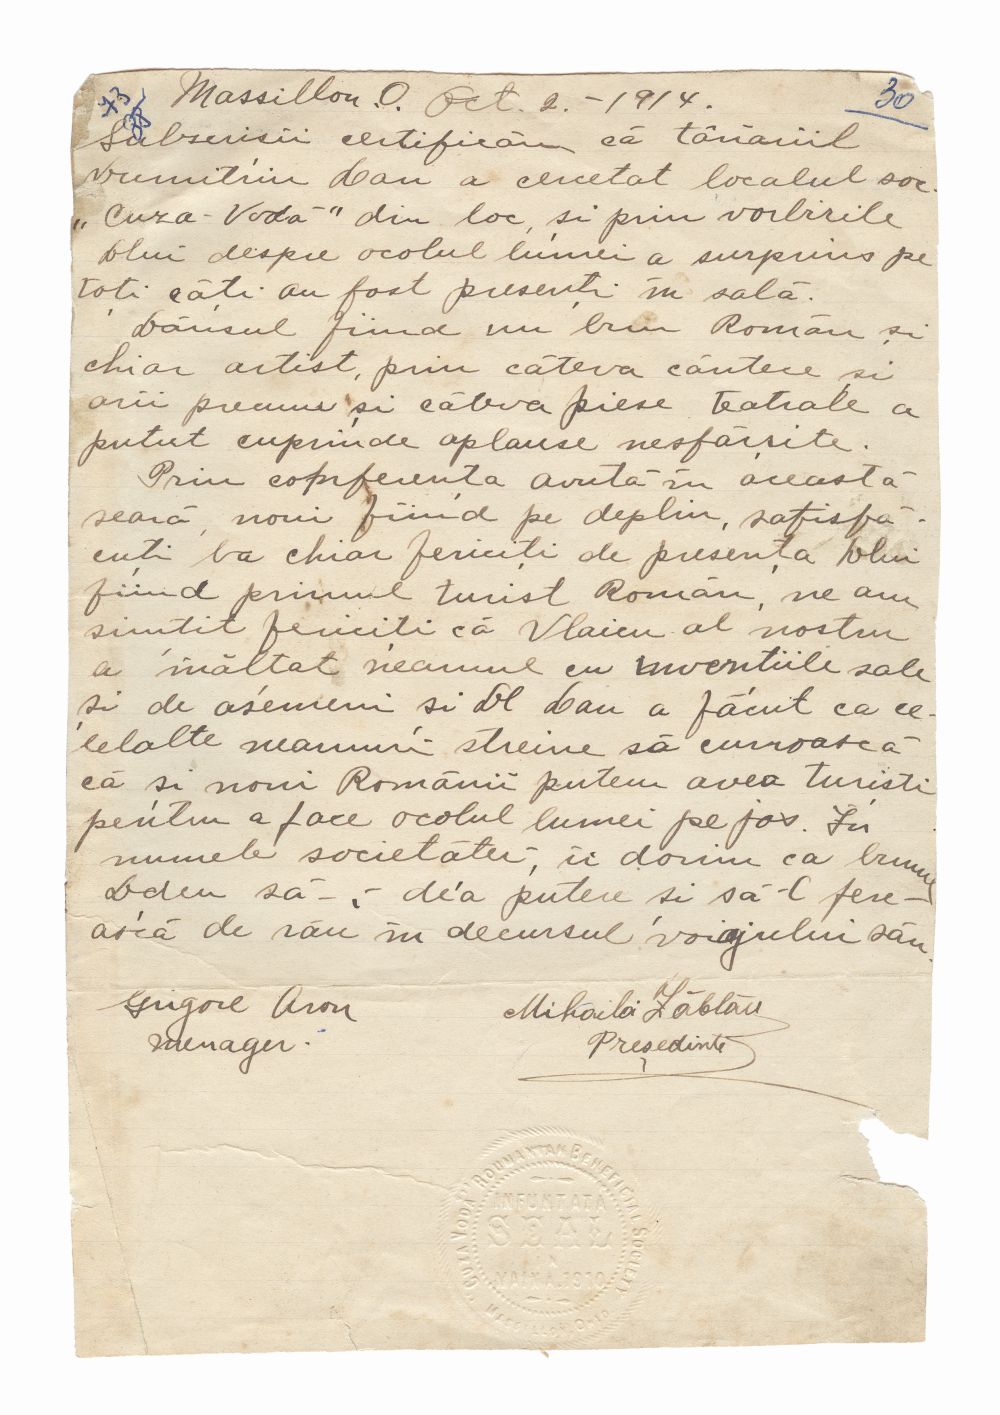 73
30
Massillon O. Oct. 2. - 1914.
Subscrisii certificăm că tânărul
Dumitriu Dan a cercetat localul soc.
„Cuza-Vodă" din loc, și prin vorbirile
Dlui despre ocolul lumei a surprins pe
toți câți au fost presenți în sală.
Dânsul fiind un bun Român și
chiar artist, prin câteva cântece și
arii precum și câteva piese teatrale a
putut cuprinde aplause nesfârsite.
Prin conferența avută în această
seară, noui fiind pe deplin, satisfă-
cuți ba chiar fericiți de presența Dlui
fiind primul turist Român, ne am
simtit fericiti că Vlaicu al nostru
a înăltat neamul cu inventiile sale
si de asemeni si Dl Dan a făcut ca ce-
lelalte neamuri streine să cunoască
că si noui Românii putem avea turisti
pentru a face ocolul lumei pe jos. În
numele societătei, îi dorim ca bunul
D-deu să-i dea putere si să-l fere-
ască de rău în decursul voiajului său.
Grigore Aron
menager.
Mihăilă Zăblău
Președinte
CUZA VODA ROUMANIAN BENEFICIAL SOCIETY
INFUNTATA
SEAL
IN
1910
MASSILLON OHIO